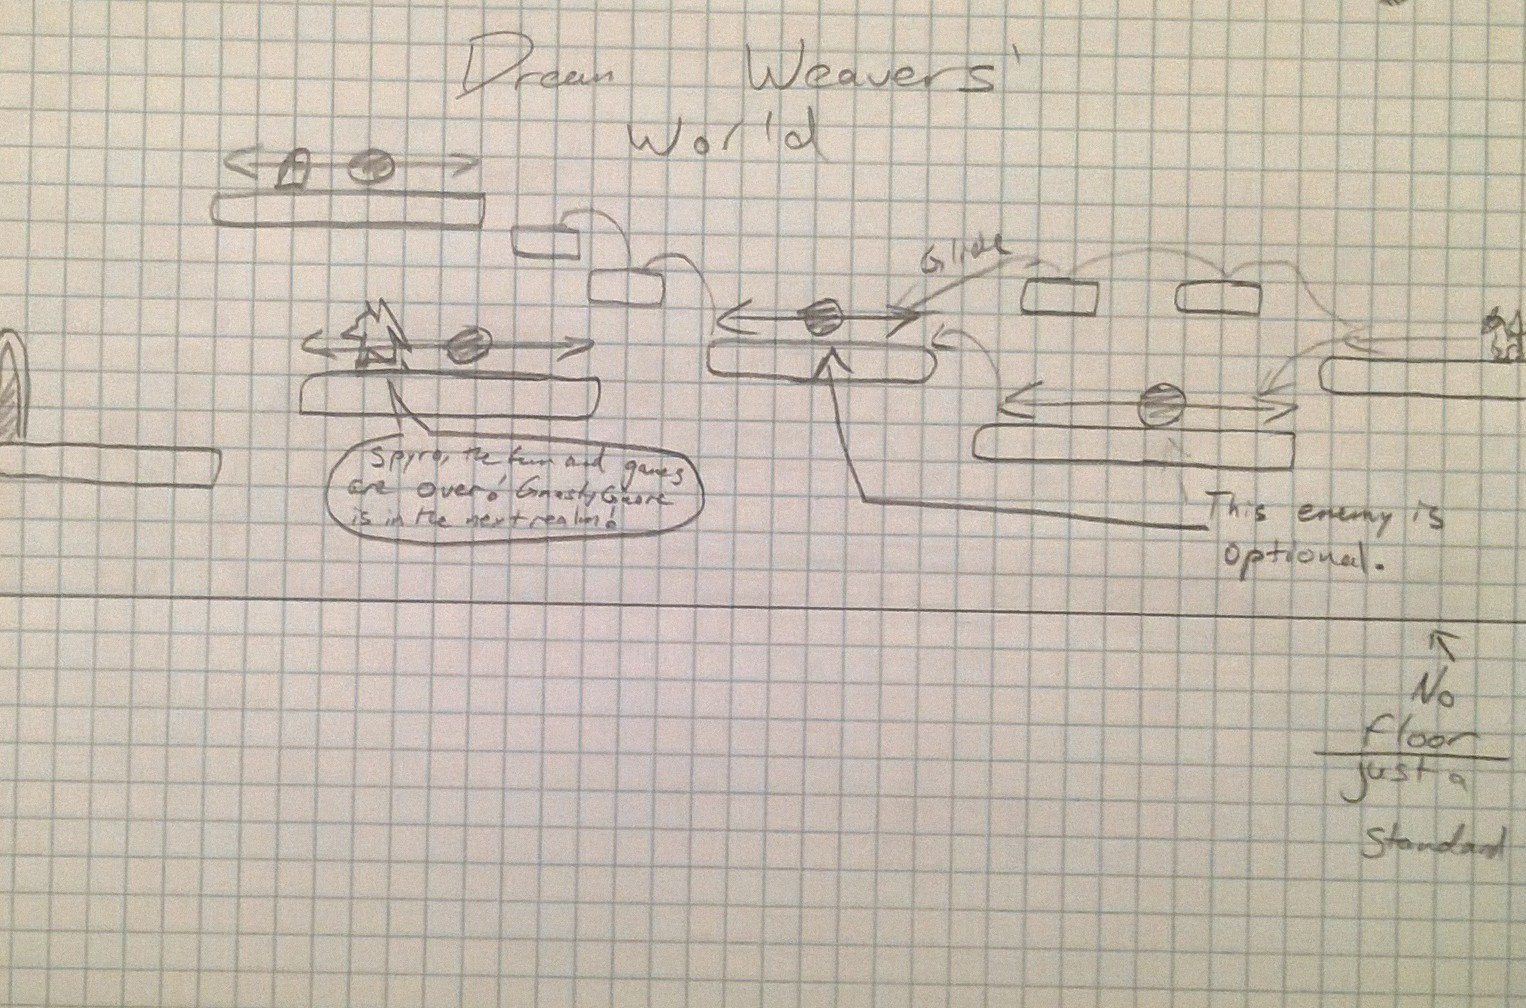 Dream Weavers'
World
Glide
Spyro, the fun and games
are over! Gnasty Gnorc
is in the next realm!
This enemy is
optional.
No
floor
just a
standard